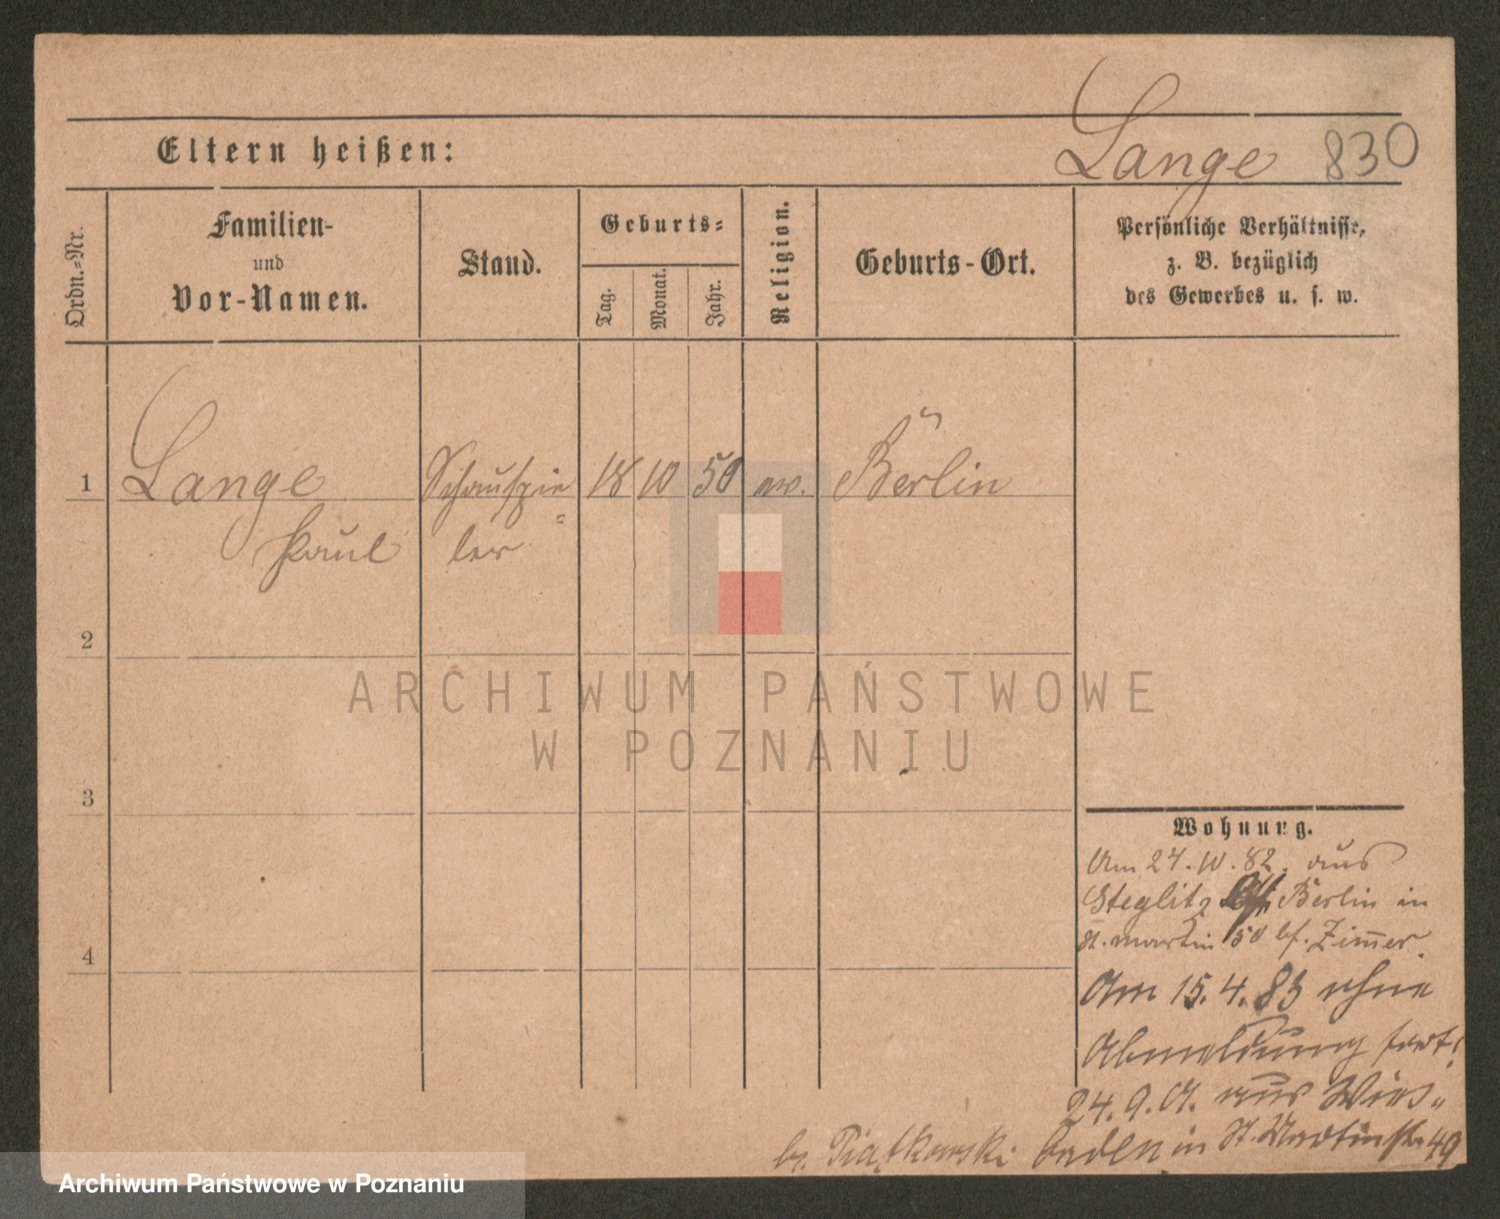 Lange 830
Eltern heißen:
Ordn.-Nr.
Familien-
und
Vor-Namen.
Stand.
Geburts-
Tag.
Monat.
Jahr.
Religion.
Geburts-Ort.
Persönliche Verhältnisse,
z. B. bezüglich
des Gewerbes u. s. w.
1 Lange Schauspie= 18 10 50 ev. Berlin
Paul ler
2
3
4
Wohnung.
Am 24.10.82. aus
Steglitz Berlin in
St. Martin 50 bf. Zim̅er.
Am 15.4.83 ohne
Abmeldung fort.
24.9.01. aus Wies-
br. Piątkowski baden in St. Martinstr. 49
ARCHIWUM PAŃSTWOWE
W POZNANIU
Archiwum Państwowe w Poznaniu